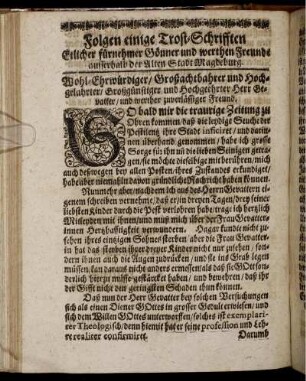 Folgen einige Trost-Schrifften
Etlicher fürnehmer Gönner und werthen Freunde
ausserhalb der Alten Stadt Magdeburg.
Wohl-Ehrwürdiger/ Großachtbahrer und Hoch-
gelahrter/ Großgünstiger und Hochgeehrter Herr Ge-
vatter/ und werther zuverlässiger Freund.
SO bald mir die traurige Zeitung zu
Ohren kommen daß die leydige Suche der
Pestilentz ihre Stadt inficiret/ und darin-
nen überhand genommen/ habe ich grosse
Sorge für ihn und die lieben Seinigen getra-
gen/ sie möchte dieselbige mit berühren/ mich
auch deswegen bey allen Posten ihres Zustandes erkundiget/
habe aber niemahln davon gründlich Nachricht haben können.
Nunmehr aber/ nachdem ich aus des Herrn Gevattern ei-
genem schreiben vernehme/ daß er in dreyen Tagen/ drey seiner
liebsten Kinder durch die Pest verlohren habe/ trage ich hertzlich
Mitleyden mit ihnen/ und muß mich über der Frau Gevatter-
innen Hertzhafftigkeit verwundern. Hagar kunte nicht zu-
sehen ihres einzigen Sohnes sterben/ aber die Frau Gevatter-
in hat das sterben ihrer dreyer Kinder nicht nur gesehen/ son-
dern ihnen auch die Augen zudrücken/ und sie ins Grab legen
müssen/ kan daraus nicht anders ermessen/ als daß sie GOtt son-
derlich hierzu müsse gestärcket haben/ und bewehren/ daß ihr
der Gifft nicht den geringsten Schaden thun können.
Daß nun der Herr Gevatter bey solchen Versuchungen
sich als einen Diener GOttes in grosser Gedult erwiesen/ und
sich dem Willen GOttes unterworffen/ solches ist exemplari-
ter Theologisch/ denn hiemit hat er seine profession und Leh-
re realiter confirmiret. Darumb